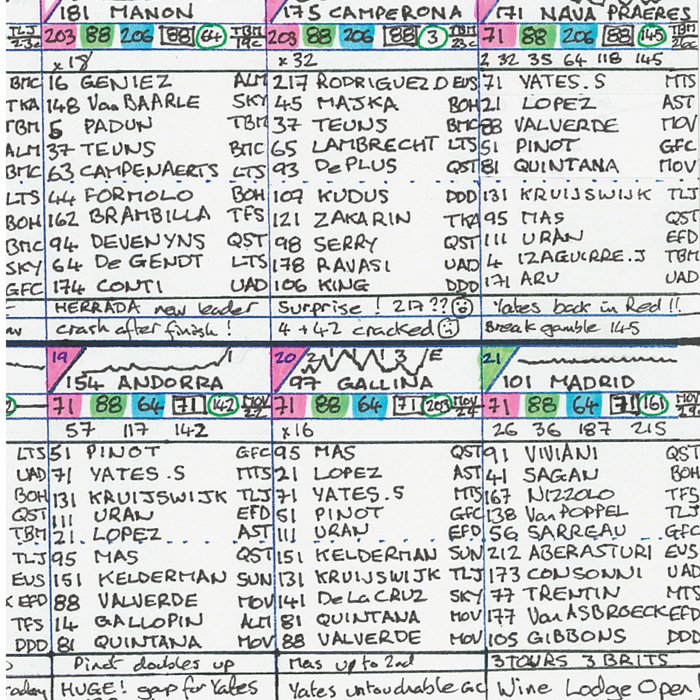 181 MANON
203 88 206 88 64 TBM 19c
x 18
16 GENIEZ ALM
148 Van BAARLE SKY
5 PADUN TBM
37 TEUNS BMC
63 CAMPENAERTS LTS
44 FORMOLO BOH
162 BRAMBILLA TFS
94 DEVENYNS QST
64 De GENDT LTS
174 CONTI UAD
HERRADA new leader
crash after finish !
175 CAMPERONA
203 88 206 88 3 TBM 23c
x 32
217 RODRIGUEZ.D EUS
45 MAJKA BOH
37 TEUNS BMC
65 LAMBRECHT LTS
93 De PLUS QST
107 KUDUS DDD
121 ZAKARIN TKA
98 SERRY QST
178 RAVASI UAD
106 KING DDD
Surprise ! 217 ??
4 + 42 cracked
171 NAVA PRAERES
71 88 206 88 145 TBM
2 32 35 64 118 145
71 YATES.S MTS
21 LOPEZ AST
88 VALVERDE MOV
51 PINOT GFC
81 QUINTANA MOV
131 KRUIJSWIJK TLJ
95 MAS QST
111 URAN EFD
4 IZAGUIRRE.J TBM
171 ARU UAD
Yates back in Red !!
Break gamble 145
BMC
TKA
TBM
ALM
BMC
LTS
BOH
BMC
SKY
GFC
19
154 ANDORRA
71 88 64 71 142 MOV 22
57 117 142
51 PINOT GFC
71 YATES.S MTS
131 KRUIJSWIJK TLJ
111 URAN EFD
21 LOPEZ AST
95 MAS QST
151 KELDERMAN SUN
88 VALVERDE MOV
14 GALLOPIN ALM
81 QUINTANA MOV
Pinot doubles up
HUGE! gap for Yates
20 2 1 1 3 E
97 GALLINA
71 88 64 71 203 MOV
x 16
95 MAS QST
21 LOPEZ AST
71 YATES.S MTS
51 PINOT GFC
111 URAN EFD
151 KELDERMAN SUN
131 KRUIJSWIJK TLJ
141 De La CRUZ SKY
81 QUINTANA MOV
88 VALVERDE MOV
Mas up to 2nd
Yates untouchable
21
101 MADRID
71 88 64 71 161 MOV
26 36 187 215
91 VIVIANI QST
41 SAGAN BOH
167 NIZZOLO TFS
138 Van POPPEL TLJ
56 SARREAU GFC
212 ABERASTURI EUS
173 CONSONNI UAD
77 TRENTIN MTS
177 Van ASBROECK EFD
105 GIBBONS DDD
3 TOURS 3 BRITS
Wine Lodge Open
LTS
UAD
BOH
QST
TBM
TLJ
EUS
EFD
TFS
DDD